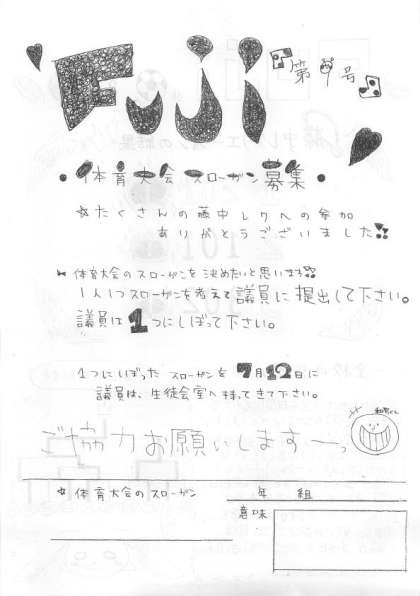 Fuji
第 号
・体育大会スローガン募集・
☆たくさんの藤中レクへの参加
ありがとうございました!!
体育大会のスローガンを決めたいと思います!!
1人1つスローガンを考えて議員に提出して下さい。
議員は1つにしぼって下さい。
1つにしぼったスローガンを7月12日に
議員は、生徒会室へ持ってきて下さい。
ご協力お願いしますーっ
☆体育大会のスローガン
年 組
意味